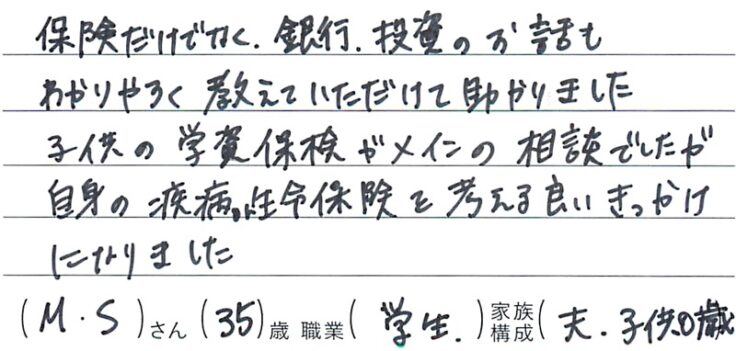 保険だけでなく、銀行、投資のお話も
わかりやすく教えていただけて助かりました
子供の学資保険がメインの相談でしたが
自身の疾病、生命保険を考える良いきっかけ
になりました
(M・S)さん (35)歳 職業(学生.)家族構成(夫・子供0歳